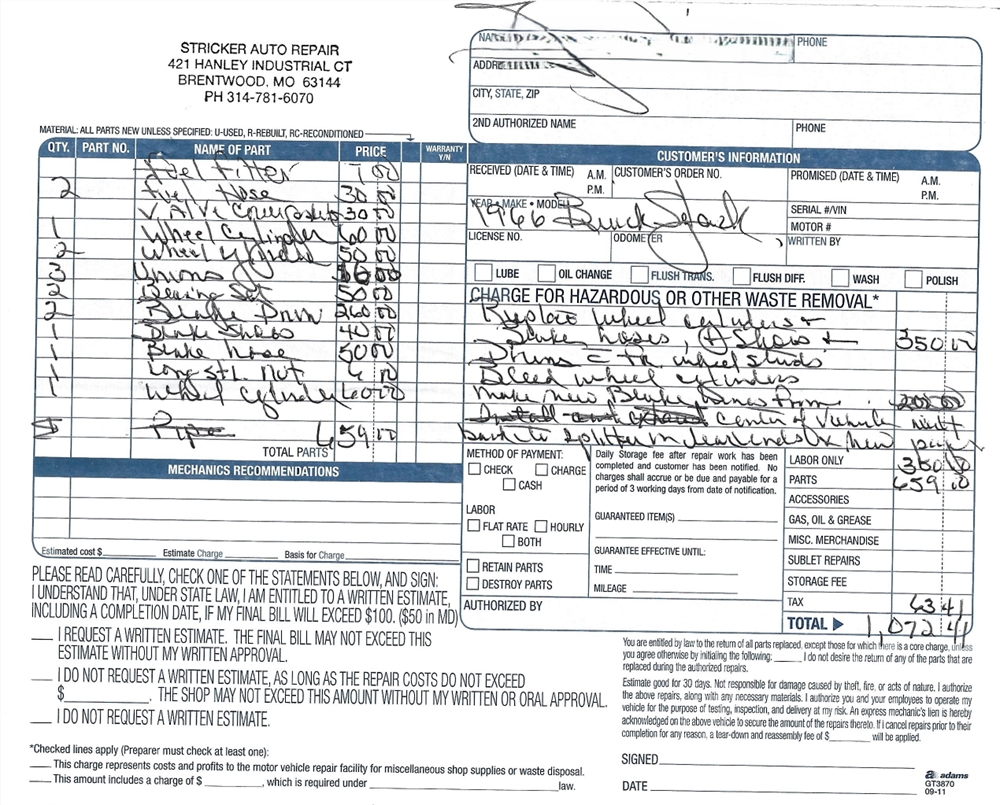 STRICKER AUTO REPAIR
421 HANLEY INDUSTRIAL CT
BRENTWOOD, MO 63144
PH 314-781-6070
NAME
PHONE
ADDRESS
CITY, STATE, ZIP
2ND AUTHORIZED NAME
PHONE
MATERIAL: ALL PARTS NEW UNLESS SPECIFIED: U-USED, R-REBUILT, RC-RECONDITIONED
QTY. PART NO. NAME OF PART PRICE WARRANTY Y/N
Fuel Filter 7 00
2 Fuel Hose 30 00
VAlve 30 00
1 Wheel Cylinder 60 00
2 Wheel 50 00
3 Unions 00
2 Bearing Set 50 00
2 Brake Drum 260 00
1 Brake Shoes 40 00
1 Brake hose 50 00
1 Long Stl. Nut 6 00
1 Wheel Cylinder 60 00
Pipe 659 00
TOTAL PARTS
CUSTOMER'S INFORMATION
RECEIVED (DATE & TIME) A.M. P.M.
CUSTOMER'S ORDER NO.
PROMISED (DATE & TIME) A.M. P.M.
YEAR • MAKE • MODEL
1966 Buick
SERIAL #/VIN
MOTOR #
LICENSE NO.
ODOMETER
WRITTEN BY
LUBE OIL CHANGE FLUSH TRANS. FLUSH DIFF. WASH POLISH
CHARGE FOR HAZARDOUS OR OTHER WASTE REMOVAL*
Replace wheel cylinders +
Brake hoses, Shoes + 350 00
Drums wheel studs
Bleed wheel cylinders
make new Brake Lines From
Install center of Vehicle
back to splitter new
METHOD OF PAYMENT:
CHECK CHARGE
CASH
LABOR
FLAT RATE HOURLY
BOTH
RETAIN PARTS
DESTROY PARTS
AUTHORIZED BY
Daily Storage fee after repair work has been
completed and customer has been notified. No
charges shall accrue or be due and payable for a
period of 3 working days from date of notification.
GUARANTEED ITEM(S)
GUARANTEE EFFECTIVE UNTIL:
TIME
MILEAGE
LABOR ONLY 350 00
PARTS 659 00
ACCESSORIES
GAS, OIL & GREASE
MISC. MERCHANDISE
SUBLET REPAIRS
STORAGE FEE
TAX 63 41
TOTAL 1,072 41
MECHANICS RECOMMENDATIONS
Estimated cost $ Estimate Charge Basis for Charge
PLEASE READ CAREFULLY, CHECK ONE OF THE STATEMENTS BELOW, AND SIGN:
I UNDERSTAND THAT, UNDER STATE LAW, I AM ENTITLED TO A WRITTEN ESTIMATE,
INCLUDING A COMPLETION DATE, IF MY FINAL BILL WILL EXCEED $100. ($50 in MD)
I REQUEST A WRITTEN ESTIMATE. THE FINAL BILL MAY NOT EXCEED THIS
ESTIMATE WITHOUT MY WRITTEN APPROVAL.
I DO NOT REQUEST A WRITTEN ESTIMATE, AS LONG AS THE REPAIR COSTS DO NOT EXCEED
$ . THE SHOP MAY NOT EXCEED THIS AMOUNT WITHOUT MY WRITTEN OR ORAL APPROVAL.
I DO NOT REQUEST A WRITTEN ESTIMATE.
*Checked lines apply (Preparer must check at least one):
This charge represents costs and profits to the motor vehicle repair facility for miscellaneous shop supplies or waste disposal.
This amount includes a charge of $ , which is required under law.
You are entitled by law to the return of all parts replaced, except those for which there is a core charge, unless
you agree otherwise by initialing the following: I do not desire the return of any of the parts that are
replaced during the authorized repairs.
Estimate good for 30 days. Not responsible for damage caused by theft, fire, or acts of nature. I authorize
the above repairs, along with any necessary materials. I authorize you and your employees to operate my
vehicle for the purpose of testing, inspection, and delivery at my risk. An express mechanic's lien is hereby
acknowledged on the above vehicle to secure the amount of the repairs thereto. If I cancel repairs prior to their
completion for any reason, a tear-down and reassembly fee of $ will be applied.
SIGNED
DATE
adams
GT3870
09-11